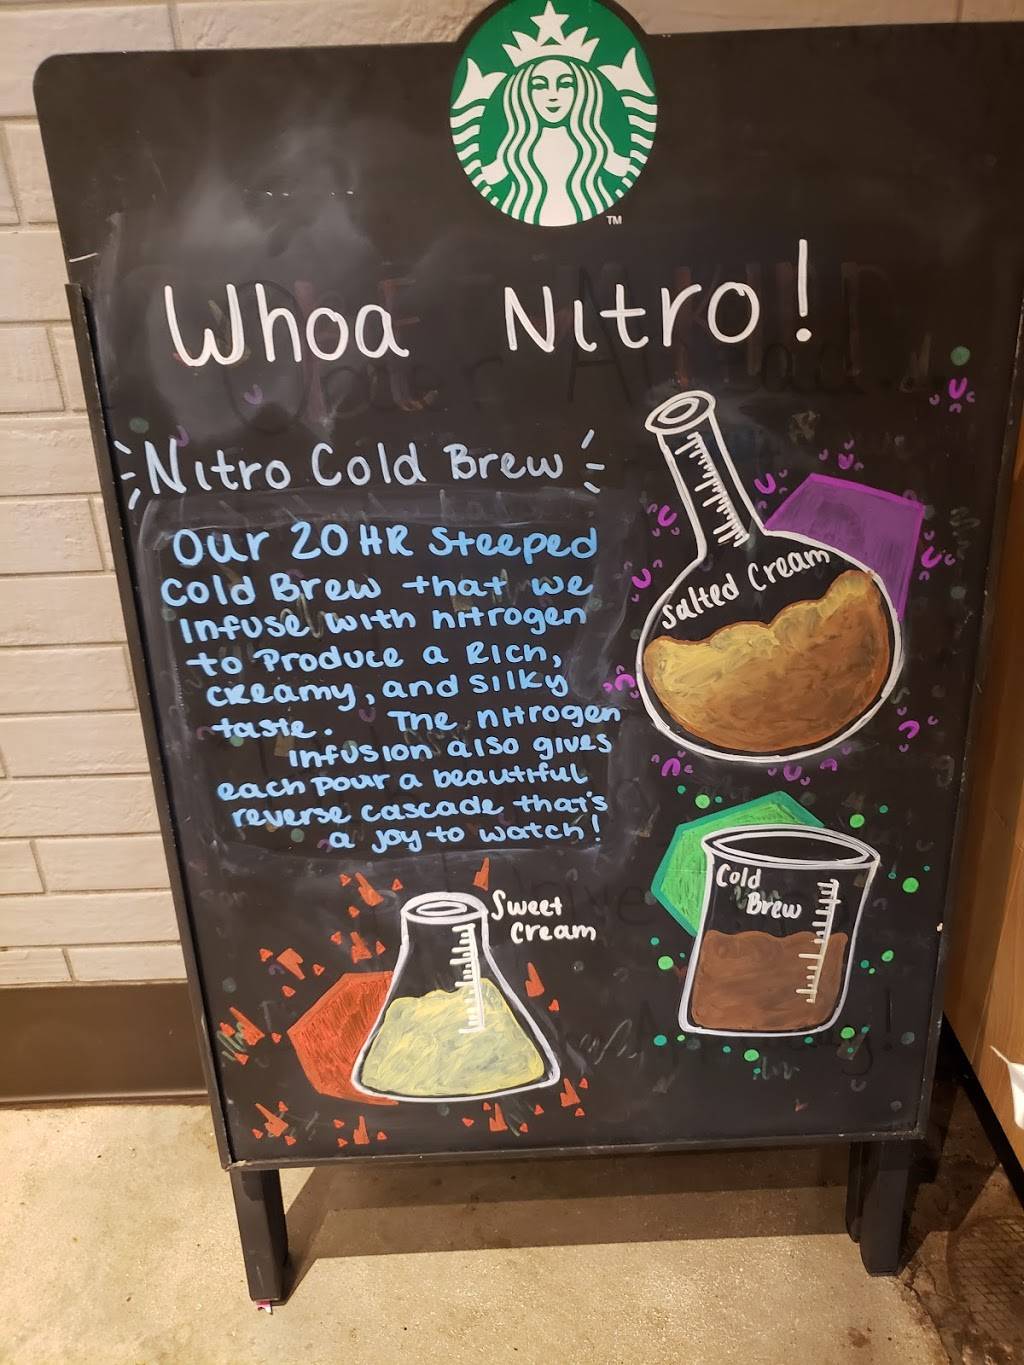 TM
Whoa Nitro!
Nitro Cold Brew
Our 20 HR Steeped
Cold Brew that we
infuse with nitrogen
to Produce a Rich,
creamy, and silky
taste. The nitrogen
infusion also gives
each pour a beautiful
reverse cascade that's
a joy to watch!
Salted Cream
Cold
Brew
Sweet
Cream